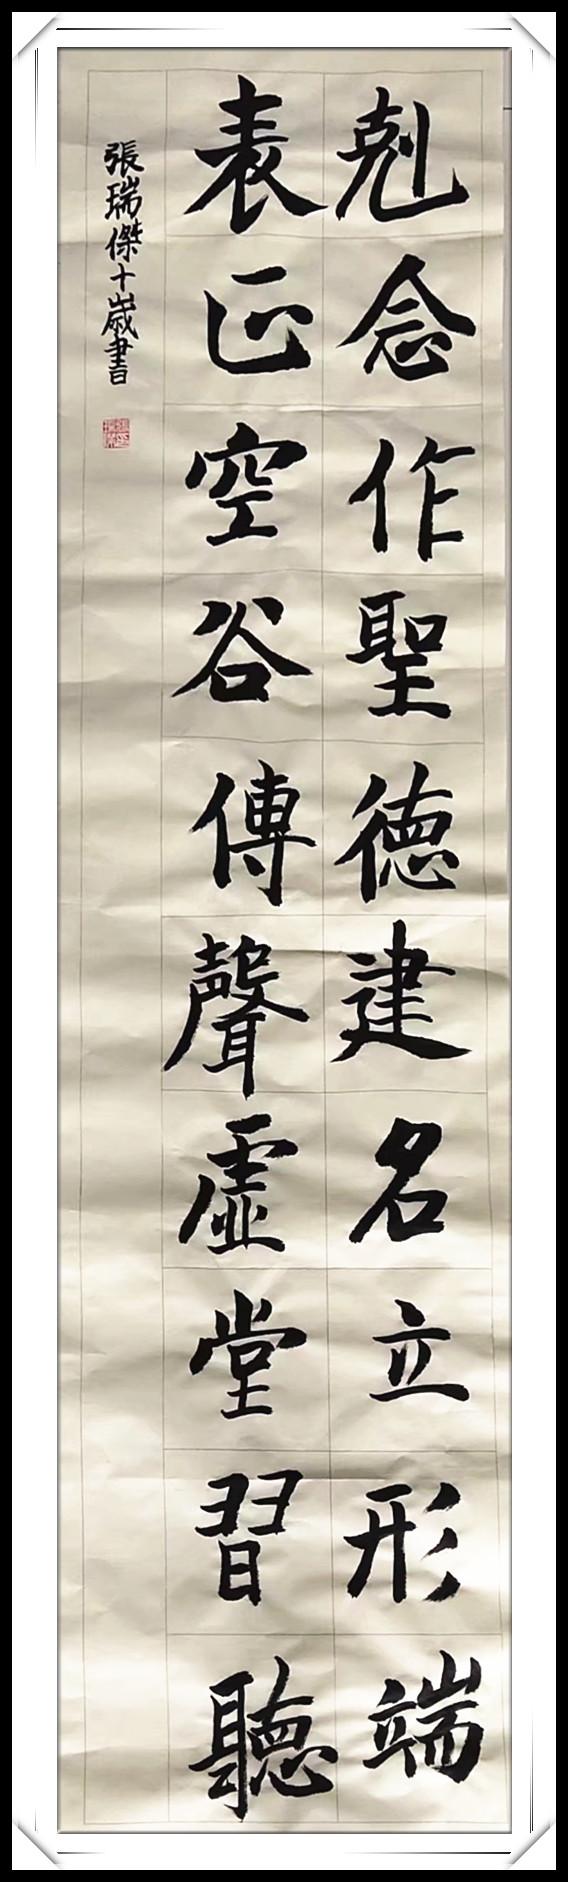 剋念作聖德建名立形端
表正空谷傳聲虛堂習聽
張瑞傑十歲書